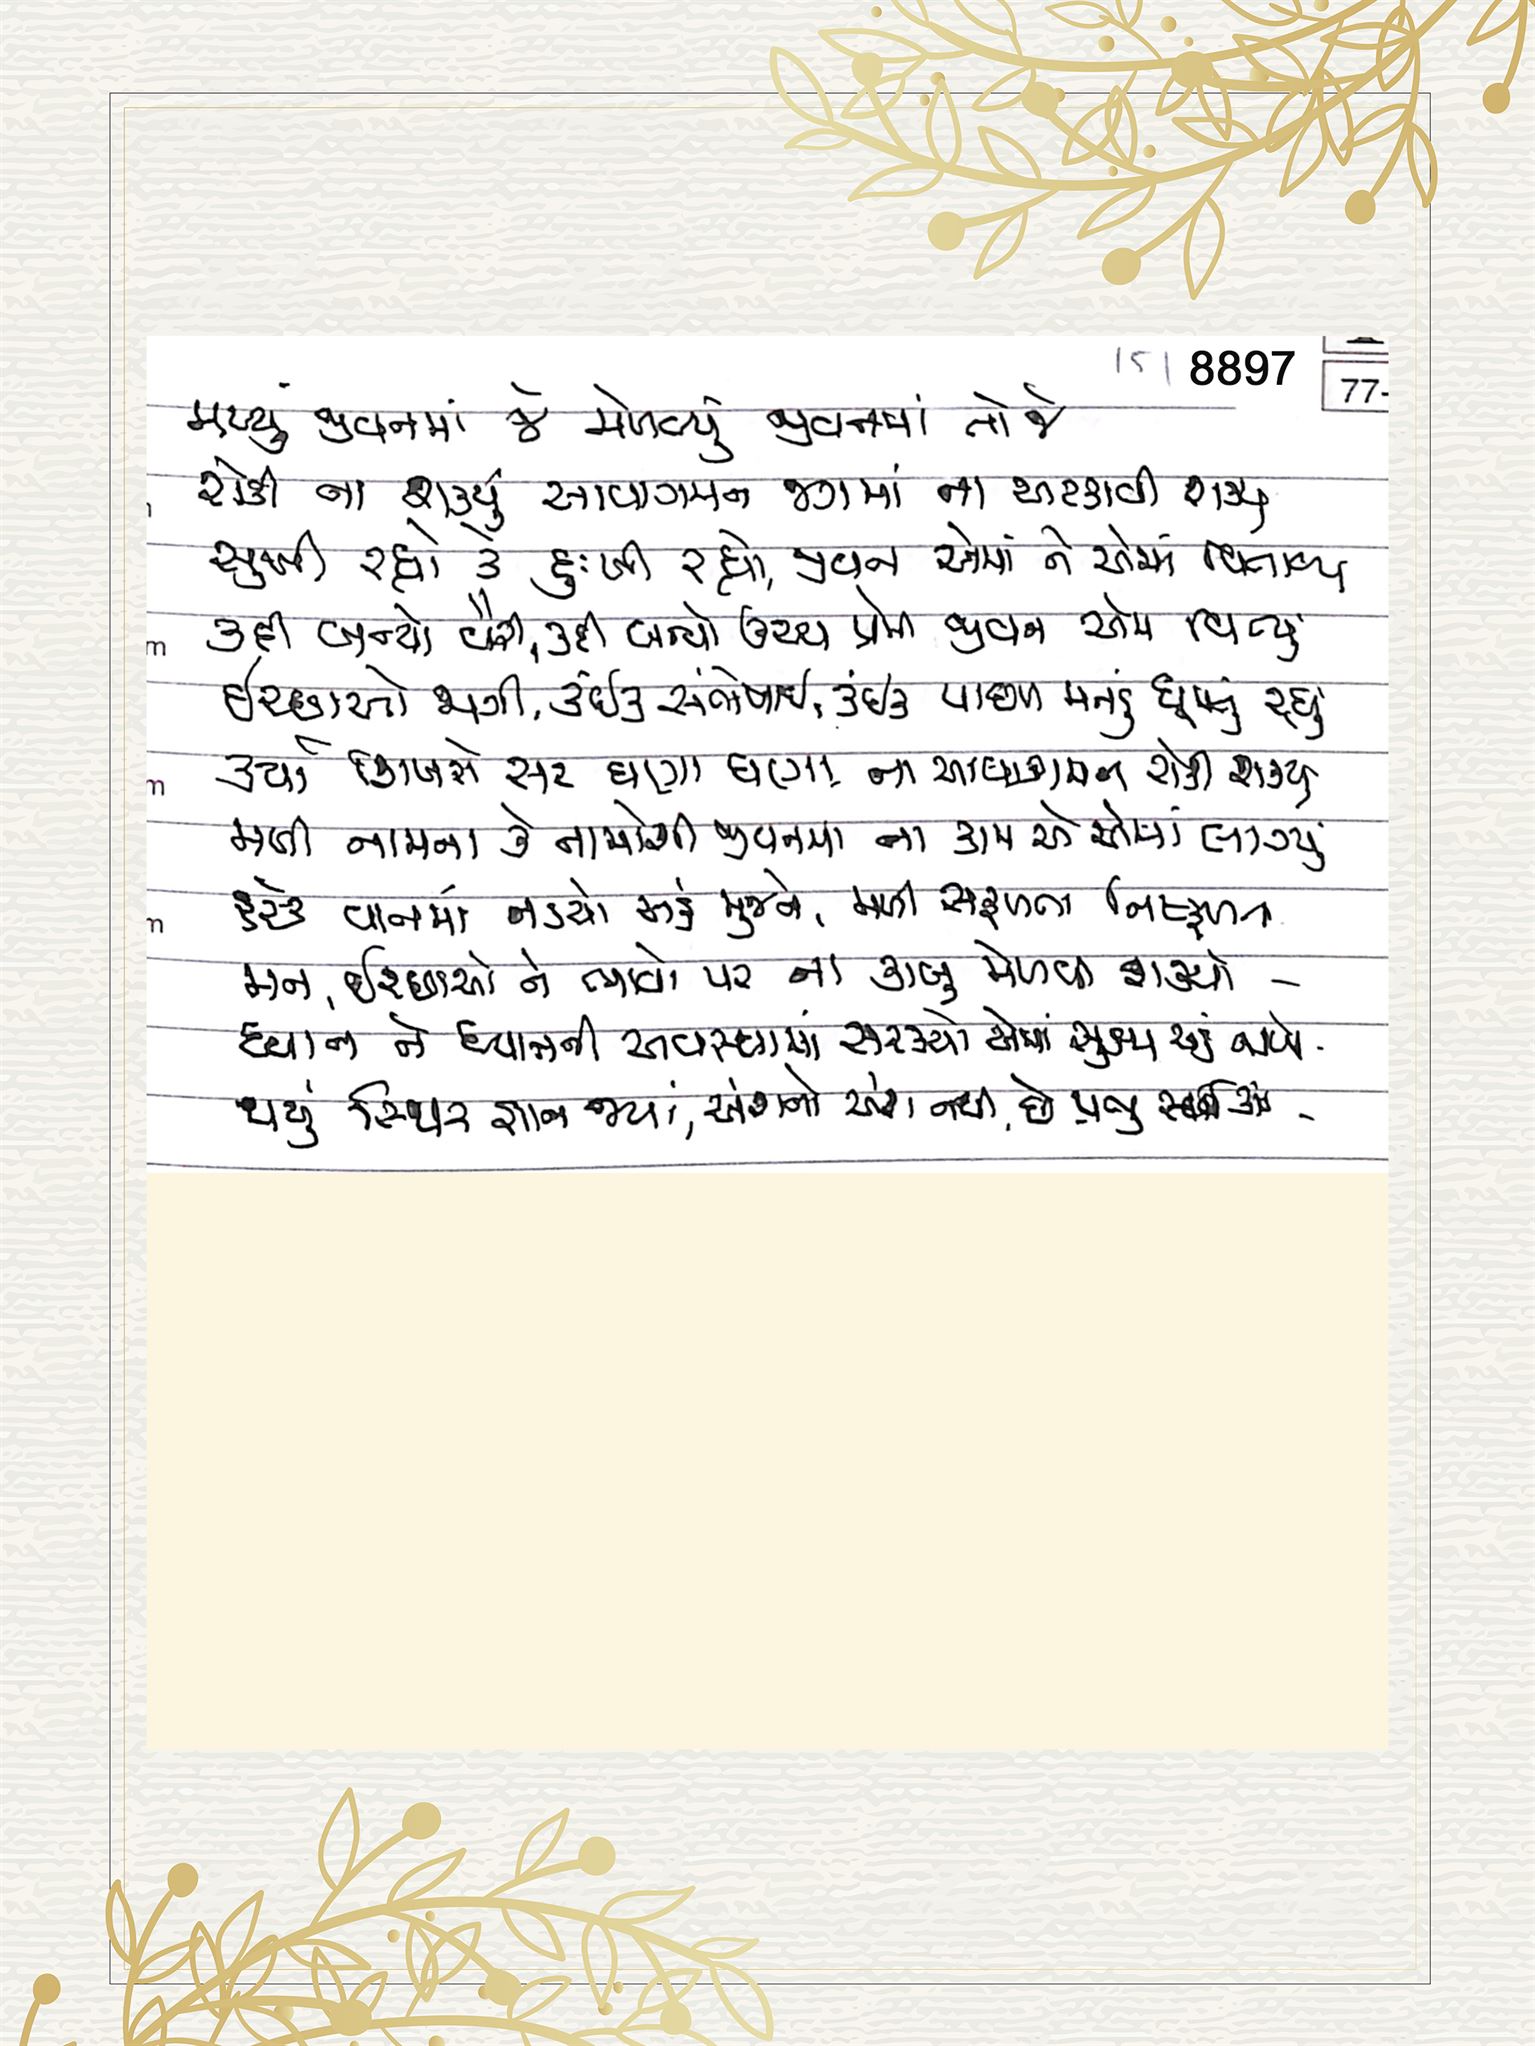 151 8897
77-
મળ્યું જીવનમાં જે મેળવ્યું જીવનમાં તો જે
રોકી ના શક્યું આવાગમન જગમાં ના અટકાવી શક્યું
સુખી રહ્યો કે દુઃખી રહ્યો, જીવન એમાં ને એમાં વિતાવ્યું
કદી બન્યો વૈરી, કદી બન્યો ઉચ્ચ પ્રેમી જીવન એમ વિત્યું
ઈચ્છાઓ જાગી, કંઈક સંતોષાઈ, કંઈક પાછળ મનડું ઘૂમતું રહ્યું
કર્યા સર ઘણા ઘણા ના આવાગમન રોકી શક્યું
મળી નામના કે નામોશી જીવનમા ના કામ એ એમાં લાગ્યું
દરેક વાતમાં નડયો અહં મુજને, મળી સફળતા નિષ્ફળતા
મન, ઈચ્છાઓ ને ભાવો પર ના કાબુ મેળવી શક્યો -
ધ્યાન ને ધ્યાનની અવસ્થામાં સરક્યો એમાં સુક્ષ્મ અહં
થયું સ્થિર જ્ઞાન જ્યાં, અંશનો અંશ નથી, છે પ્રભુ -
m
m
m